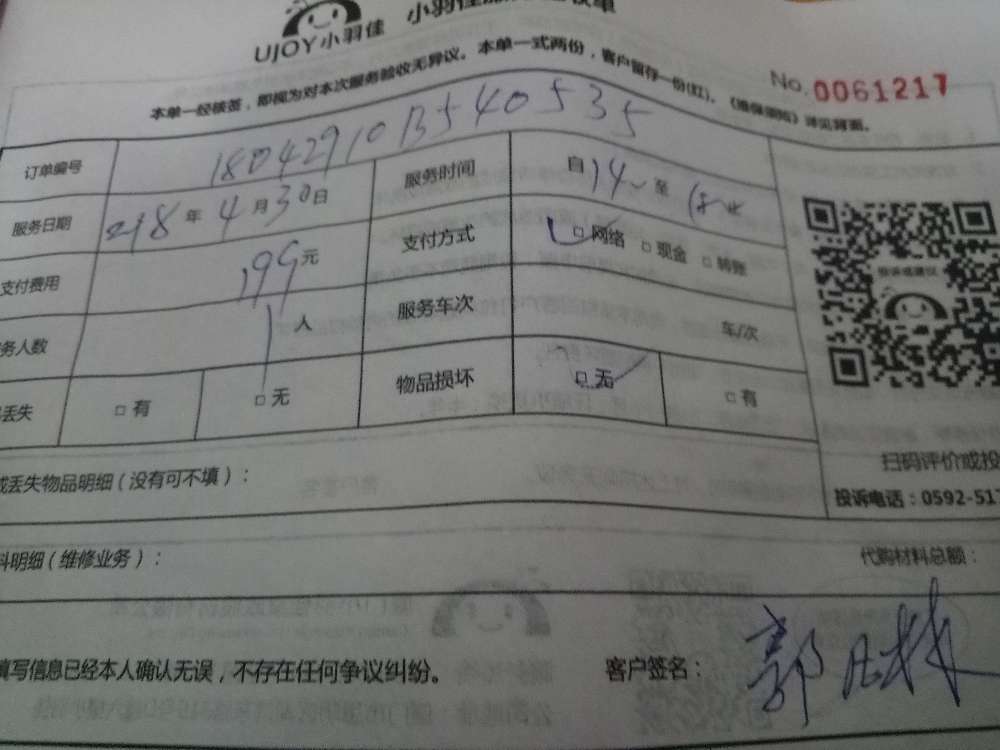 UJOY小羽佳
No. 0061217
本单一经核签，即视为对本次服务验收无异议。本单一式两份，客户留存一份(红)。《维保细则》详见背面。
订单编号 18042910B540535
服务日期 218年4月30日 服务时间 自14 至
支付费用 199元 支付方式 □网络 □现金 □转账
务人数 1人 服务车次 车/次
丢失 □有 □无 物品损坏 □无 □有
投诉或建议
扫码评价或投
投诉电话：0592-51
或丢失物品明细（没有可不填）：
料明细（维修业务）： 代购材料总额：
填写信息已经本人确认无误，不存在任何争议纠纷。 客户签名：郭